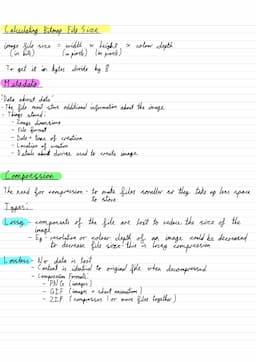 Calculating Bitmap File Size
image file size = width × height × colour depth
(in bits) (in pixels) (in pixels)
To get it in bytes divide by 8
Metadata
"Data about data"
- The file must store additional information about the image
- Things stored:
- Image dimensions
- File format
- Date + time of creation
- Location of creation
- Details about device used to create image
Compression
The need for compression - to make files smaller so they take up less space
to store
Types:
Lossy - components of the file are lost to reduce the size of the
image
- Eg - resolution or colour depth of an image could be decreased
to decrease file size - this is lossy compression
Lossless - No data is lost
- Content is identical to original file when decompressed
- Compression formats:
- PNG (images)
- GIF (images + short animation)
- ZIP (compresses 1 or more files together)